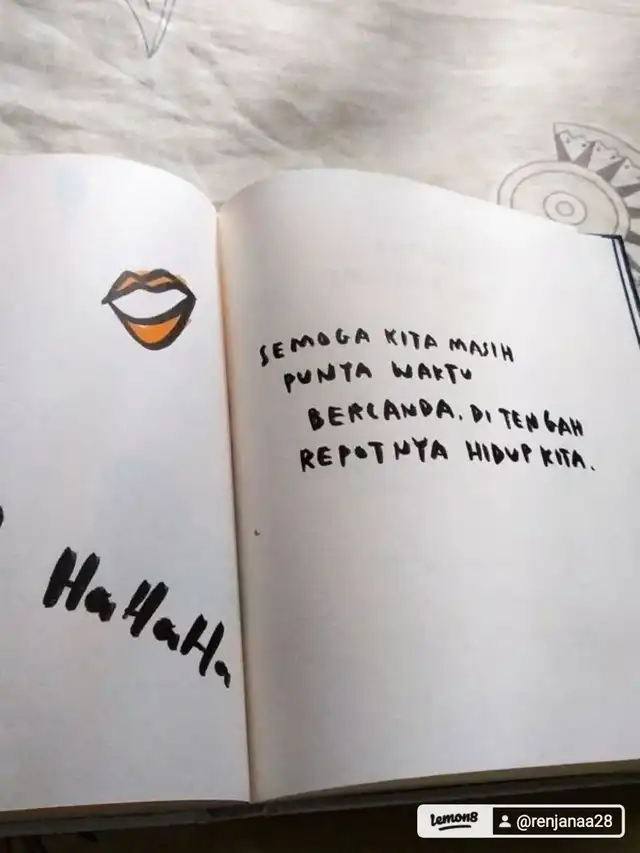 HaHaHa
SEMOGA KITA MASIH
PUNYA WAKTU
BERCANDA. DI TENGAH
REPOTNYA HIDUP KITA.
lemon8 @renjanaa28